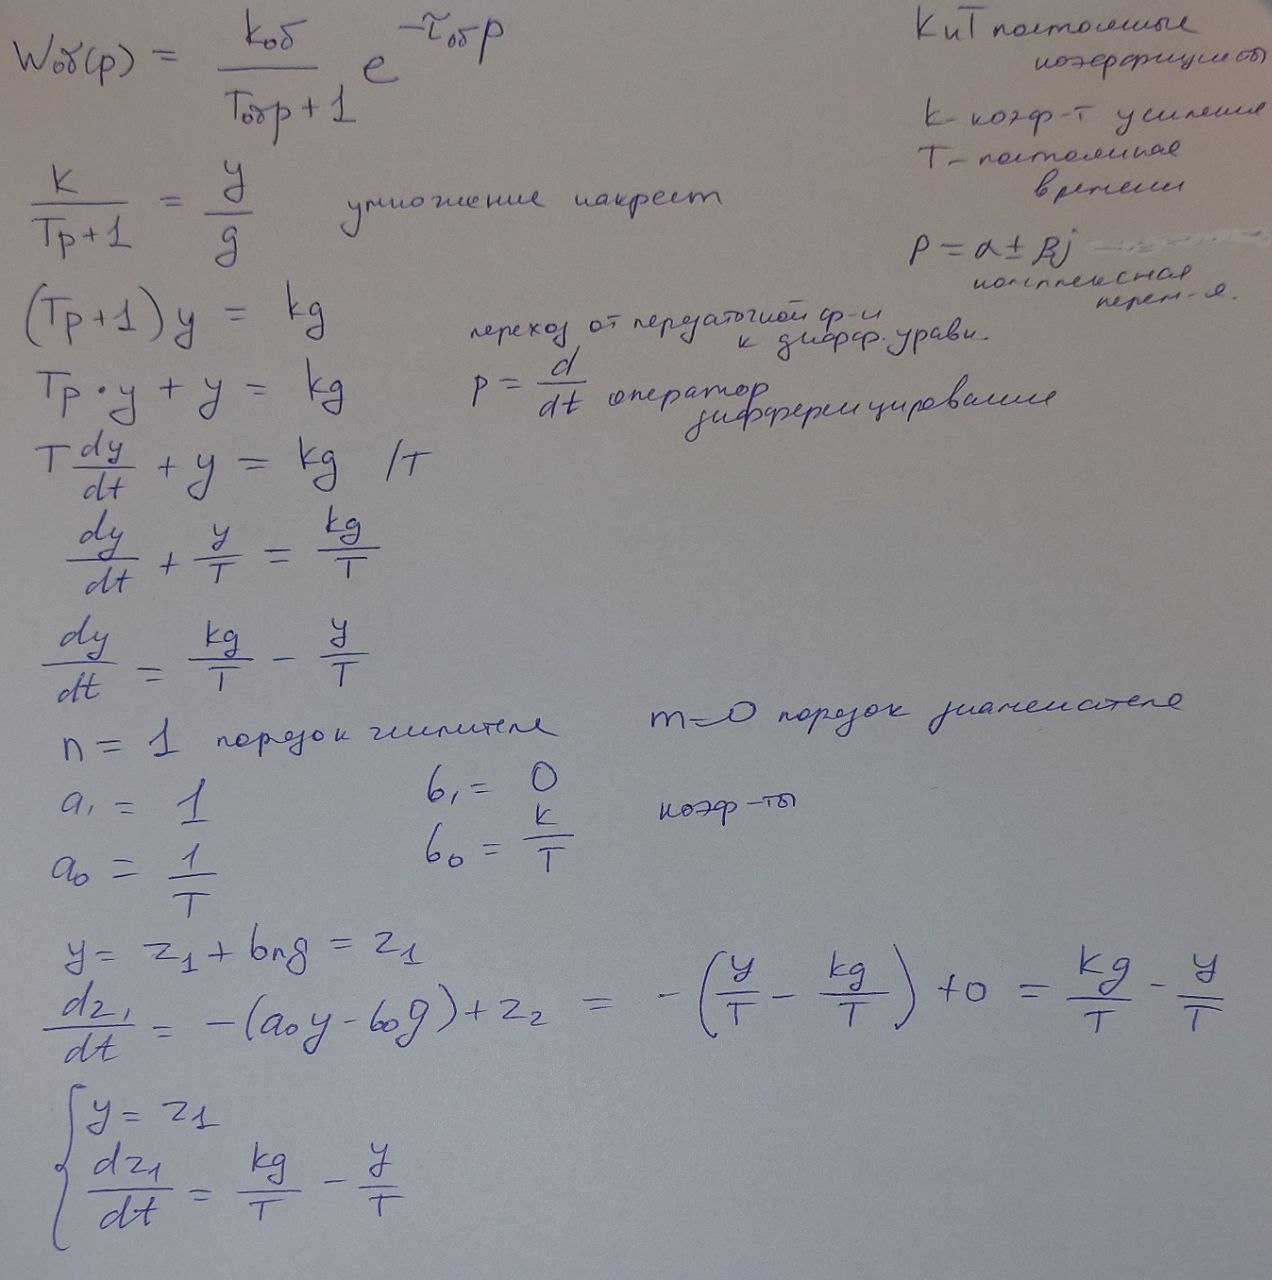 Wоб(p) = kоб / (Tобp + 1) e^(-τобp)
K и T постоянные
коэффициенты
k - коэф-т усиления
T - постоянная
времени
k / (Tp + 1) = y / g умножение накрест
p = α ± βj
комплексная
перем-я.
(Tp + 1) y = kg
переход от передаточной ф-и
к дифф. уравн.
Tp · y + y = kg
p = d/dt оператор
дифференцирование
T dy/dt + y = kg /T
dy/dt + y/T = kg/T
dy/dt = kg/T - y/T
n = 1 порядок числителя m=0 порядок знаменателя
a₁ = 1 b₁ = 0 коэф-ты
a₀ = 1/T b₀ = k/T
y = z₁ + bₙg = z₁
dz₁/dt = -(a₀y - b₀g) + z₂ = -(y/T - kg/T) + 0 = kg/T - y/T
{ y = z₁
dz₁/dt = kg/T - y/T